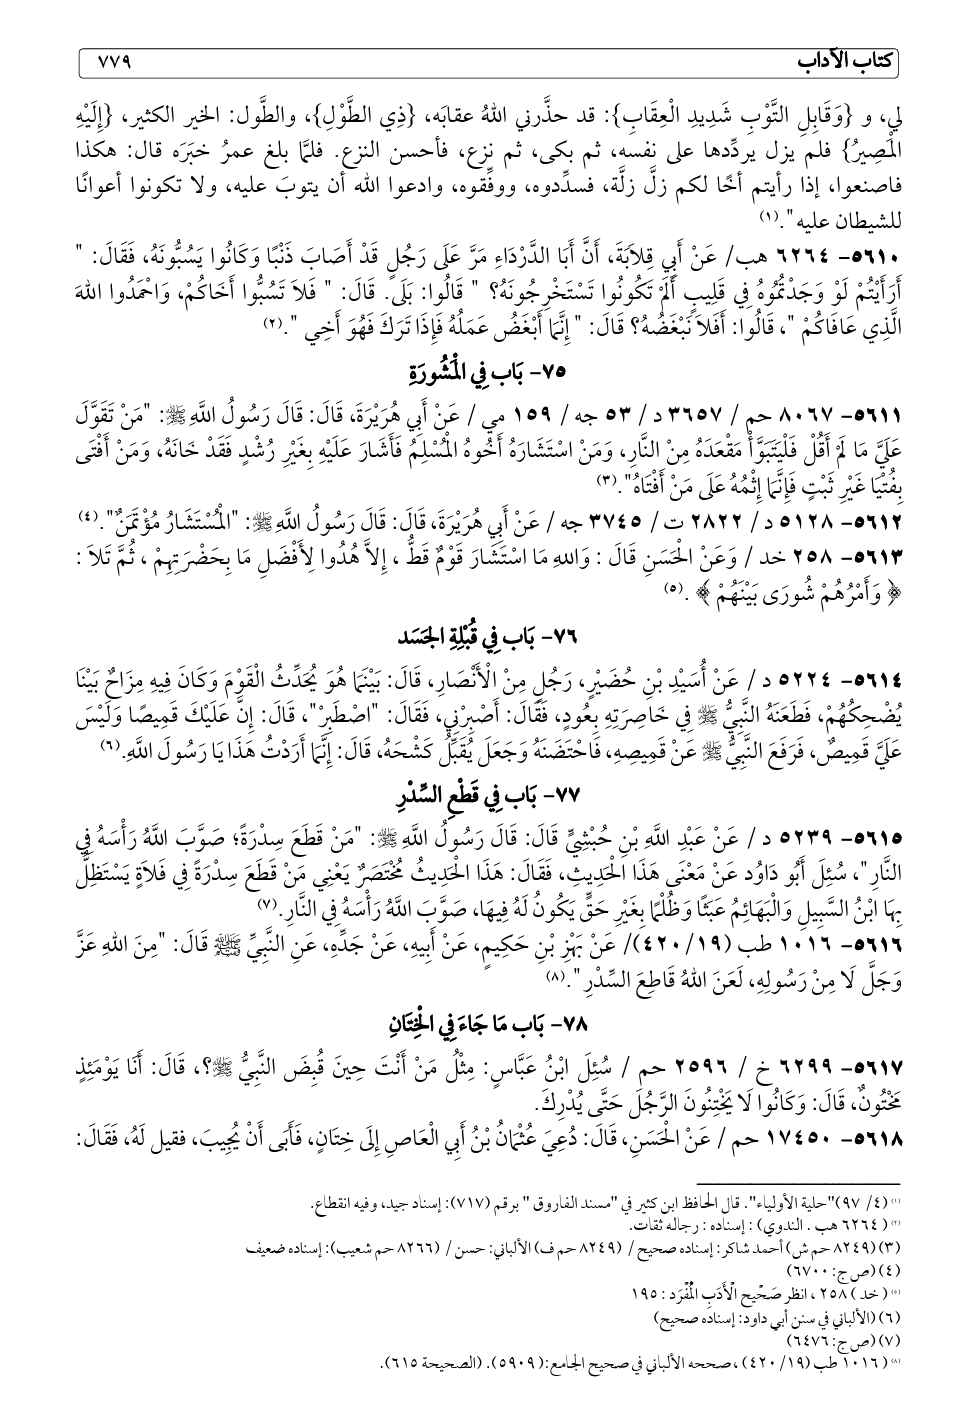 كتاب الآداب ٧٧٩
لي، و {وَقَابِلِ التَّوْبِ شَدِيدِ الْعِقَابِ}: قد حذَّرني اللهُ عقابَه، {ذِي الطَّوْلِ}، والطَّول: الخير الكثير، {إِلَيْهِ
الْمَصِيرُ} فلم يزل يردِّدها على نفسه، ثم بكى، ثم نزع، فأحسن النزع. فلمَّا بلغ عمرُ خبَرَه قال: هكذا
فاصنعوا، إذا رأيتم أخًا لكم زلَّ زلَّة، فسدِّدوه، ووفِّقوه، وادعوا الله أن يتوبَ عليه، ولا تكونوا أعوانًا
للشيطان عليه".(١)
٥٦١٠- ٦٢٦٤ هب/ عَنْ أَبِي قِلَابَةَ، أَنَّ أَبَا الدَّرْدَاءِ مَرَّ عَلَى رَجُلٍ قَدْ أَصَابَ ذَنْبًا وَكَانُوا يَسُبُّونَهُ، فَقَالَ: "
أَرَأَيْتُمْ لَوْ وَجَدْتُمُوهُ فِي قَلِيبٍ أَلَمْ تَكُونُوا تَسْتَخْرِجُونَهُ؟ " قَالُوا: بَلَى. قَالَ: " فَلَا تَسُبُّوا أَخَاكُمْ، وَاحْمَدُوا اللهَ
الَّذِي عَافَاكُمْ "، قَالُوا: أَفَلَا نَبْغَضُهُ؟ قَالَ: " إِنَّمَا أَبْغَضُ عَمَلُهُ فَإِذَا تَرَكَ فَهُوَ أَخِي ".(٢)
٧٥- بَاب فِي الْمَشُورَةِ
٥٦١١- ٨٠٦٧ حم / ٣٦٥٧ د / ٥٣ جه / ١٥٩ مي / عَنْ أَبِي هُرَيْرَةَ، قَالَ: قَالَ رَسُولُ اللَّهِ ﷺ: "مَنْ تَقَوَّلَ
عَلَيَّ مَا لَمْ أَقُلْ فَلْيَتَبَوَّأْ مَقْعَدَهُ مِنَ النَّارِ، وَمَنْ اسْتَشَارَهُ أَخُوهُ الْمُسْلِمُ فَأَشَارَ عَلَيْهِ بِغَيْرِ رُشْدٍ فَقَدْ خَانَهُ، وَمَنْ أَفْتَى
بِفُتْيَا غَيْرِ ثَبْتٍ فَإِنَّمَا إِثْمُهُ عَلَى مَنْ أَفْتَاهُ".(٣)
٥٦١٢- ٥١٢٨ د/ ٢٨٢٢ ت/ ٣٧٤٥ جه / عَنْ أَبِي هُرَيْرَةَ، قَالَ: قَالَ رَسُولُ اللَّهِ ﷺ: "الْمُسْتَشَارُ مُؤْتَمَنٌ".(٤)
٥٦١٣- ٢٥٨ خد / وَعَنْ الْحَسَنِ قَالَ : وَاللهِ مَا اسْتَشَارَ قَوْمٌ قَطُّ ، إِلاَّ هُدُوا لِأَفْضَلِ مَا بِحَضْرَتِهِمْ ، ثُمَّ تَلاَ :
﴿ وَأَمْرُهُمْ شُورَى بَيْنَهُمْ ﴾ .(٥)
٧٦- بَاب فِي قُبْلَةِ الْجَسَد
٥٦١٤- ٥٢٢٤ د / عَنْ أُسَيْدِ بْنِ حُضَيْرٍ، رَجُلٍ مِنْ الْأَنْصَارِ، قَالَ: بَيْنَمَا هُوَ يُحَدِّثُ الْقَوْمَ وَكَانَ فِيهِ مِزَاحٌ بَيْنَا
يُضْحِكُهُمْ، فَطَعَنَهُ النَّبِيُّ ﷺ فِي خَاصِرَتِهِ بِعُودٍ، فَقَالَ: أَصْبِرْنِي، فَقَالَ: "اصْطَبِرْ"، قَالَ: إِنَّ عَلَيْكَ قَمِيصًا وَلَيْسَ
عَلَيَّ قَمِيصٌ، فَرَفَعَ النَّبِيُّ ﷺ عَنْ قَمِيصِهِ، فَاحْتَضَنَهُ وَجَعَلَ يُقَبِّلُ كَشْحَهُ، قَالَ: إِنَّمَا أَرَدْتُ هَذَا يَا رَسُولَ اللَّهِ.(٦)
٧٧- بَاب فِي قَطْعِ السِّدْرِ
٥٦١٥- ٥٢٣٩ د / عَنْ عَبْدِ اللَّهِ بْنِ حُبْشِيٍّ قَالَ: قَالَ رَسُولُ اللَّهِ ﷺ: "مَنْ قَطَعَ سِدْرَةً؛ صَوَّبَ اللَّهُ رَأْسَهُ فِي
النَّارِ"، سُئِلَ أَبُو دَاوُد عَنْ مَعْنَى هَذَا الْحَدِيثِ، فَقَالَ: هَذَا الْحَدِيثُ مُخْتَصَرٌ يَعْنِي مَنْ قَطَعَ سِدْرَةً فِي فَلَاةٍ يَسْتَظِلُّ
بِهَا ابْنُ السَّبِيلِ وَالْبَهَائِمُ عَبَثًا وَظُلْمًا بِغَيْرِ حَقٍّ يَكُونُ لَهُ فِيهَا، صَوَّبَ اللَّهُ رَأْسَهُ فِي النَّارِ.(٧)
٥٦١٦- ١٠١٦ طب (٤٢٠/١٩)/ عَنْ بَهْزِ بْنِ حَكِيمٍ، عَنْ أَبِيهِ، عَنْ جَدِّهِ، عَنِ النَّبِيِّ ﷺ قَالَ: "مِنَ اللهِ عَزَّ
وَجَلَّ لَا مِنْ رَسُولِهِ، لَعَنَ اللهُ قَاطِعَ السِّدْرِ ".(٨)
٧٨- بَاب مَا جَاءَ فِي الْخِتَانِ
٥٦١٧- ٦٢٩٩ خ / ٢٥٩٦ حم / سُئِلَ ابْنُ عَبَّاسٍ: مِثْلُ مَنْ أَنْتَ حِينَ قُبِضَ النَّبِيُّ ﷺ؟، قَالَ: أَنَا يَوْمَئِذٍ
مَخْتُونٌ، قَالَ: وَكَانُوا لَا يَخْتِنُونَ الرَّجُلَ حَتَّى يُدْرِكَ.
٥٦١٨- ١٧٤٥٠ حم / عَنْ الْحَسَنِ، قَالَ: دُعِيَ عُثْمَانُ بْنُ أَبِي الْعَاصِ إِلَى خِتَانٍ، فَأَبَى أَنْ يُجِيبَ، فقيل لَهُ، فَقَالَ:
(١) (٤/ ٩٧)"حلية الأولياء". قال الحافظ ابن كثير في "مسند الفاروق " برقم (٧١٧): إسناد جيد، وفيه انقطاع.
(٢) ( ٦٢٦٤ هب . الندوي) : إسناده : رجاله ثقات.
(٣) (٨٢٤٩ حم ش) أحمد شاكر: إسناده صحيح / (٨٢٤٩ حم ف) الألباني: حسن / (٨٢٦٦ حم شعيب): إسناده ضعيف
(٤) (ص ج: ٦٧٠٠)
(٥) ( خد ) ٢٥٨ ، انظر صَحْيح الْأَدَبِ الْمُفْرَد : ١٩٥
(٦) (الألباني في سنن أبي داود: إسناده صحيح)
(٧) (ص ج: ٦٤٧٦)
(٨) ( ١٠١٦ طب (٤٢٠/١٩) ، صححه الألباني في صحيح الجامع: ( ٥٩٠٩). (الصحيحة ٦١٥).